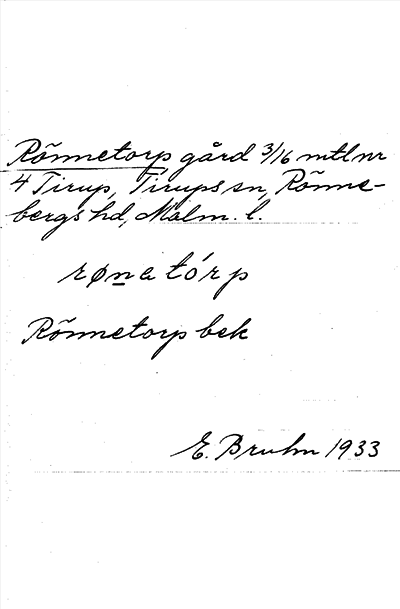 Rõnnetorp gård 3/16 mtl nr
4 Tirup, Tirups sn, Rõnne-
bergs hd, Malm. l.
røn̲a tórp
Rõnnetorp bek
E. Bruhn 1933